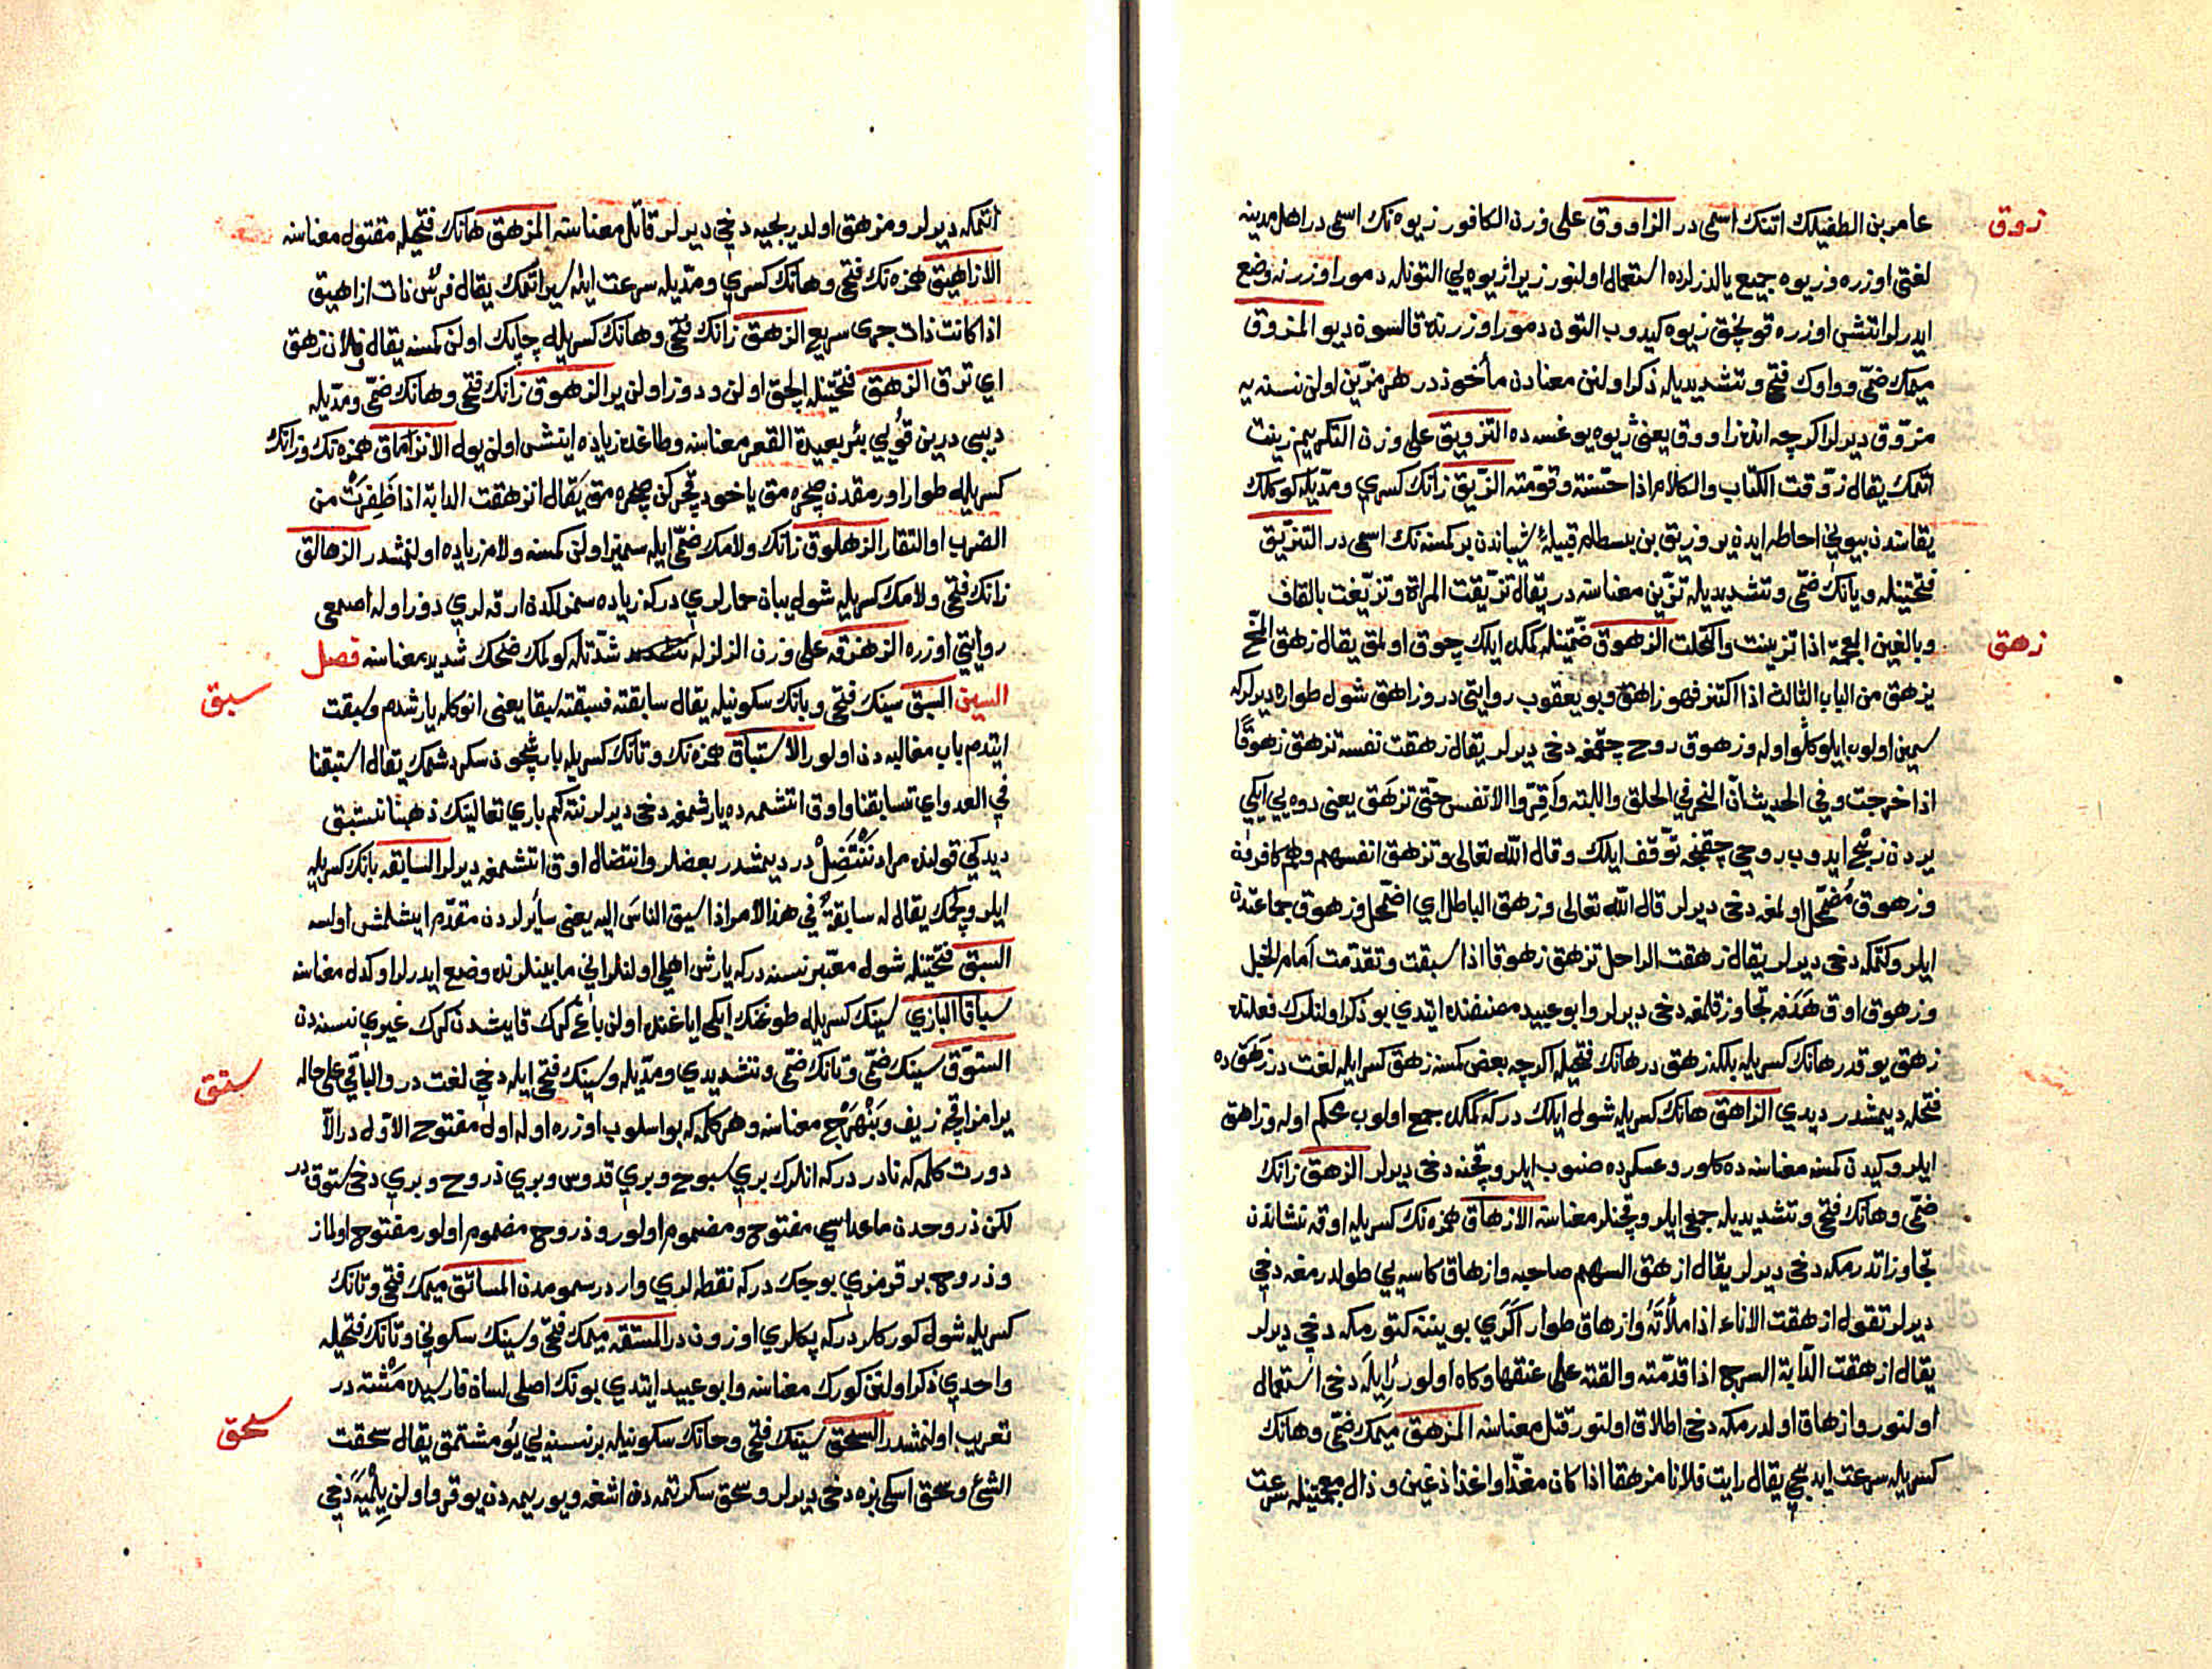 زوق
عامر بن الطفيلك اتنك اسمى در الزاووق على وزن الكافور زيوه نك اسمى در اهل مدينه
لغتى اوزره وزيوه جميع يالدزلرده استعمال اولنور زيرا زيوه يى التونله دمور اوزرنه وضع
ايدرلر اتشى اوزره قويجق زيوه كيدوب التون دمور اوزرنده قالسون ديو المزوق
ميمك ضمى وواوك فتحى وتشديديله ذكر اولنن معنادن مأخوذدر هر مزين اولن نسنه يه
مزوق ديرلر اكرچه انده زاووق يعنى زيوه يوغسه ده التزويق على وزن التكريم زينت
اتمك يقال زوقت الكتاب والكلام اذا حسنته وقومته الزيق زانك كسرى ومديله كوملك
يقاسندن بيونى احاطه ايدن ير وزيق بن بسطام قبيلۀ شيباندن بر كمسنه نك اسمى در التزيق
فتحتينله ويانك ضمى وتشديديله تزين معناسنه در يقال تزيقت المراة وتزيغت بالقاف
زهق
وبالغين المعجمة اذا تزينت واكتحلت الزهوق ضمتينله كمكده ايلك چوق اولمق يقال زهق المخ
يزهق من الباب الثالث اذا اكتنز فهو زاهق وبو يعقوب روايتى در وزاهق شول طواره ديرلركه
سمين اولوب ايلوكلو اوله وزهوق روح چقمغه دخى ديرلر يقال زهقت نفسه تزهق زهوقا
اذا خرجت وفى الحديث ان النحر فى الحلق واللبة واقروا الانفس حتى تزهق يعنى دوه يى ايكى
يردن ذبح ايدوب روحى چقنجه توقف ايلك وقال الله تعالى وتزهق انفسهم وهم كافرون
وزهوق مضمحل اولمغه دخى ديرلر قال الله تعالى وزهق الباطل اى اضمحل وزهوق جماعتدن
ايلرو كتمكه دخى ديرلر يقال زهقت الراحل تزهق زهوقا اذا سبقت وتقدمت امام الخيل
وزهوق اوق هدفه تجاوز قلمغه دخى ديرلر وابو عبيد مصنفنده ايتدى بو ذكر اولنلرك فعلنده
زهق يوقدر هانك كسريله بلكه زهق در هانك فتحيله اكرچه بعض كمسنه زهق كسرايله لغت در زهق ده
فتحله ديمشدر ديدى الزاهق هانك كسريله شول ايلك در كه كمكده جمع اولوب محكم اوله وزاهق
ايلرو كيدن كمسنه معناسنه ده كلور وعسكرده صنوب ايلرو قچنه دخى ديرلر الزهق زانك
ضمى وهانك فتحى وتشديديله جمع ايلرو قچنلر معناسنه الازهاق همزه نك كسريله اوقه نشاندن
تجاوز اتدرمكه دخى ديرلر يقال ازهق السهم صاحبه وازهاق كاسه يى طولدرمغه دخى
ديرلر تقول ازهقت الاناء اذا ملأته وازهاق طوار اكرى بويننه كتورمكه دخى ديرلر
يقال ازهقت الدابة السرج اذا قدمته والقته على عنقها وكاه اولور رايله دخى استعمال
اولنور وازهاق اولدرمكه دخى اطلاق اولنور قتل معناسنه المزهق ميمك ضمى وهانك
كسريله سرعت ايديجى يقال رايت فلانا مزهقا اذا كان مغذا واغذاذ غين وذال معجمتينله سرعت
اتمكه ديرلر ومزهق اولديريجيه دخى ديرلر قاتل معناسنه المزهق هانك فتحيله مقتول معناسنه
الازاهيق همزه نك فتحى وهانك كسرى ومديله سرعت ايله سير اتمك يقال فرس ذات ازاهيق
اذا كانت ذات جرى سريع الزهق زانك فتحى وهانك كسريله چاپك اولن كمسنه يقال فلان زهق
اى نزق الزهق فتحتينله الچق اولن ودوز اولن ير الزهوق زانك فتحى وهانك ضمى ومديله
ديبى درين قويى بئر بعيدة القعر معناسنه وطاغده زياده اينشى اولن يول الانزهاق همزه نك وزانك
كسريله طوار اورمقدن صچره مق ياخود قچركن صچره مق يقال انزهقت الدابة اذا ظفرت من
الضرب او النقار الزهلوق زانك ولامك ضمى ايله سميز اولن كمسنه ولام زياده اولنمشدر الزهالق
زانك فتحى ولامك كسريله شول يبان حمارلرى در كه زياده سمزلكدن ارقه لرى دوز اوله اصمعى
روايتى اوزره الزهزقه على وزن الزلزله شدتله كولمك ضحك شديد معناسنه فصل
سبق
السين السبق سينك فتحى وبانك سكونيله يقال سابقته فسبقته سبقا يعنى انوكله يارشدم وسبقت
ايتدم باب مغالبه دن اولور الاستباق همزه نك وتانك كسريله يارشچون سكردشمك يقال استبقنا
فى العدو اى تسابقنا واوق اتشمه ده يارشمغه دخى ديرلر نته كم بارى تعالينك ذهبنا نستبق
ديدكى قولنده مراد ننتضل در ديمشدر بعضلر وانتضال اوق اتشمغه ديرلر السابقه بانك كسريله
ايلرو پچك يقال له سابقة فى هذا الامر اذا سبق الناس اليه يعنى سائرلردن مقدم ايشلمش اولسه
السبق فتحتينله شول معتبر نسنه در كه يارش اهلى اولنلر انى مابينلرنده وضع ايدرلر اوكدل معناسنه
سباقا البازى سينك كسريله طوغنك ايكى اياغنده اولن باغ كرك قايشدن كرك غيرى نسنه دن
ستق
الستوق سينك ضمى وتانك ضمى وتشديدى ومديله وسينك فتحى ايله دخى لغت در والباقى على حاله
يرامز اقچه زيف وبنهرج معناسنه وهر كلمه كه بو اسلوب اوزره اوله اول مفتوح الاول در الا
دورت كلمه كه نادر در كه انلرك برى سبوح وبرى قدوس وبرى ذروح وبرى دخى ستوق در
لكن ذروحدن ماعداسى مفتوح ومضموم اولور وذروح مضموم اولور مفتوح اولماز
وذروح بر قرمزى بوجك در كه نقطه لرى وار در سمومدن المساتق ميمك فتحى وتانك
كسريله شول كوركلر در كه يكلرى اوزون در المستقه ميمك فتحى وسينك سكونى وتانك فتحيله
واحدى ذكر اولنن كورك معناسنه وابو عبيد ايتدى بونك اصلى لسان فارسيده مشته در
سحق
تعريب اولنمشدر السحق سينك فتحى وحانك سكونيله بر نسنه يى يومشتمق يقال سحقت
الشئ وسحق اسكى بزه دخى ديرلر وسحق سكرتمه دن اشغه ويوريمه دن يوقرو اولن يلميه دخى